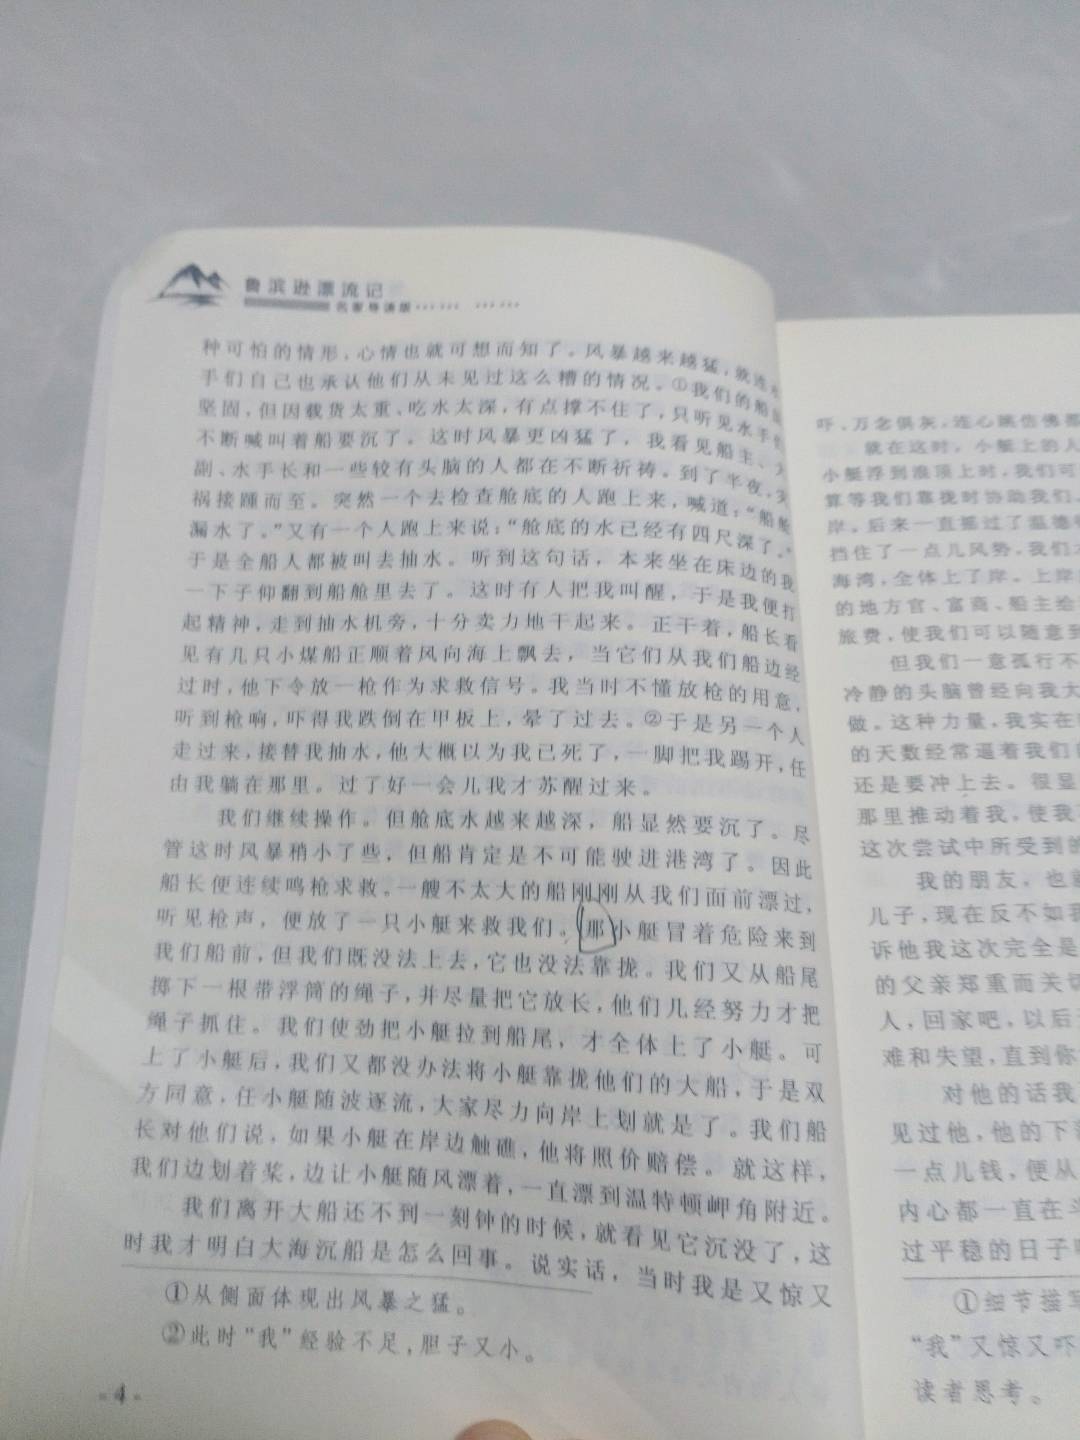 鲁滨逊漂流记
名家导读版…… ……
种可怕的情形,心情也就可想而知了。风暴越来越猛,就连水
手们自己也承认他们从未见过这么糟的情况。①我们的船虽
坚固,但因载货太重、吃水太深,有点撑不住了,只听见水手们
不断喊叫着船要沉了。这时风暴更凶猛了,我看见船主、大
副、水手长和一些较有头脑的人都在不断祈祷。到了半夜,灾
祸接踵而至。突然一个去检查舱底的人跑上来,喊道:“船舱
漏水了。”又有一个人跑上来说:“舱底的水已经有四尺深了。”
于是全船人都被叫去抽水。听到这句话,本来坐在床边的我
一下子仰翻到船舱里去了。这时有人把我叫醒,于是我便打
起精神,走到抽水机旁,十分卖力地干起来。正干着,船长看
见有几只小煤船正顺着风向海上飘去,当它们从我们船边经
过时,他下令放一枪作为求救信号。我当时不懂放枪的用意,
听到枪响,吓得我跌倒在甲板上,晕了过去。②于是另一个人
走过来,接替我抽水,他大概以为我已死了,一脚把我踢开,任
由我躺在那里。过了好一会儿我才苏醒过来。
我们继续操作。但舱底水越来越深,船显然要沉了。尽
管这时风暴稍小了些,但船肯定是不可能驶进港湾了。因此
船长便连续鸣枪求救。一艘不太大的船刚刚从我们面前漂过,
听见枪声,便放了一只小艇来救我们。那小艇冒着危险来到
我们船前,但我们既没法上去,它也没法靠拢。我们又从船尾
掷下一根带浮筒的绳子,并尽量把它放长,他们几经努力才把
绳子抓住。我们使劲把小艇拉到船尾,才全体上了小艇。可
上了小艇后,我们又都没办法将小艇靠拢他们的大船,于是双
方同意,任小艇随波逐流,大家尽力向岸上划就是了。我们船
长对他们说,如果小艇在岸边触礁,他将照价赔偿。就这样,
我们边划着桨,边让小艇随风漂着,一直漂到温特顿岬角附近。
我们离开大船还不到一刻钟的时候,就看见它沉没了,这
时我才明白大海沉船是怎么回事。说实话,当时我是又惊又
①从侧面体现出风暴之猛。
②此时“我”经验不足,胆子又小。
4
吓,万念俱灰,连心跳仿佛都
就在这时,小艇上的人
小艇浮到浪顶上时,我们可
算等我们靠拢时协助我们。
岸。后来一直摇过了温德
挡住了一点儿风势,我们
海湾,全体上了岸。上岸
的地方官、富商、船主给
旅费,使我们可以随意到
但我们一意孤行不
冷静的头脑曾经向我大
做。这种力量,我实在
的天数经常逼着我们
还是要冲上去。很显
那里推动着我,使我
这次尝试中所受到的
我的朋友,也
儿子,现在反不如我
诉他我这次完全是
的父亲郑重而关切
人,回家吧,以后
难和失望,直到你
对他的话我
见过他,他的下落
一点儿钱,便从
内心都一直在斗
过平稳的日子
①细节描写
“我”又惊又吓
读者思考。